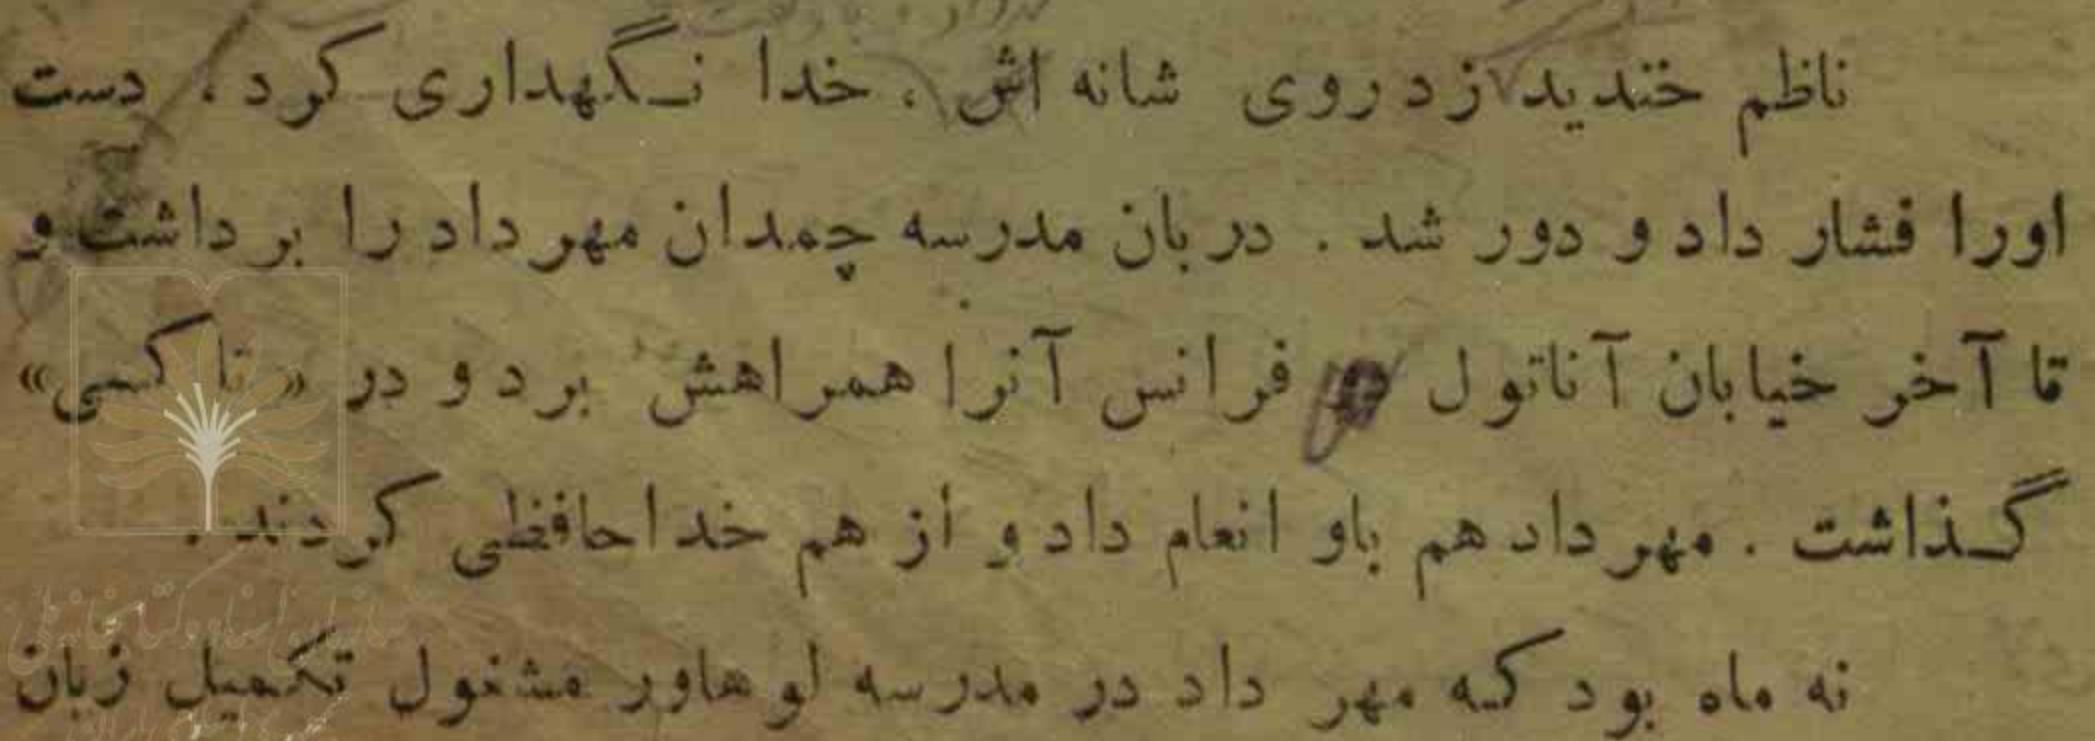 ناظم خندید زد روی شانه اش ، خدا نگهداری کرد ، دست
اورا فشار داد و دور شد . دربان مدرسه چمدان مهرداد را برداشت و
تا آخر خیابان آناتول فرانس آنرا همراهش برد و در « تاکسی »
گذاشت . مهرداد هم باو انعام داد و از هم خداحافظی کردند .
نه ماه بود که مهر داد در مدرسه لوهاور مشغول تکمیل زبان